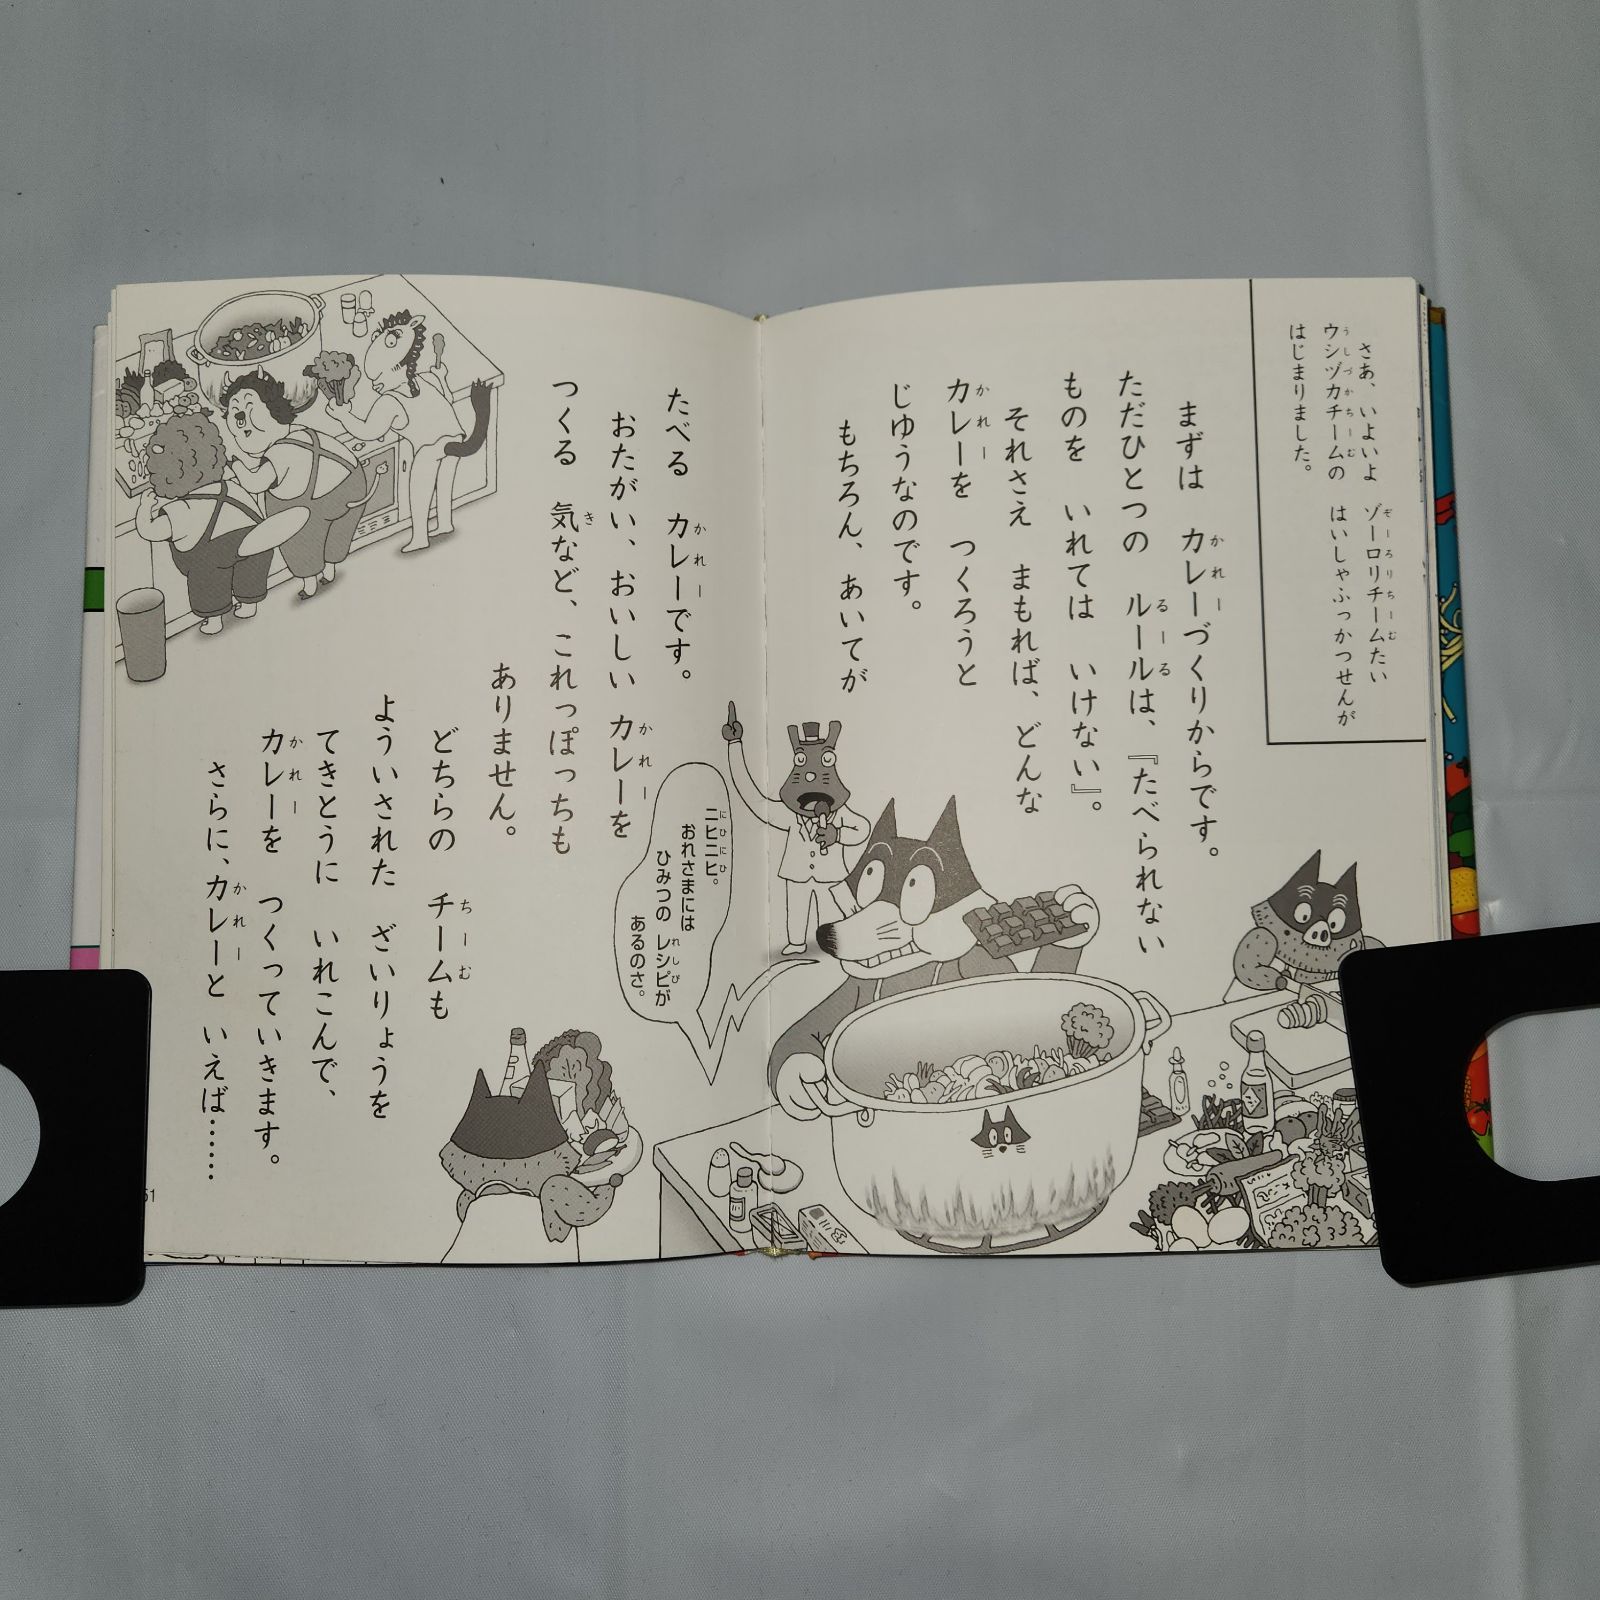 さあ、いよいよ ゾーロリチームたい
ウシヅカチームの はいしゃふっかつせんが
はじまりました。
まずは カレーづくりからです。
ただひとつの ルールは、『たべられない
ものを いれては いけない』。
それさえ まもれば、どんな
カレーを つくろうと
じゆうなのです。
もちろん、あいてが
たべる カレーです。
おたがい、おいしい カレーを
つくる 気など、これっぽっちも
ありません。
どちらの チームも
よういされた ざいりょうを
てきとうに いれこんで、
カレーを つくっていきます。
さらに、カレーと いえば……
ニヒニヒ。
おれさまには
ひみつの レシピが
あるのさ。
51